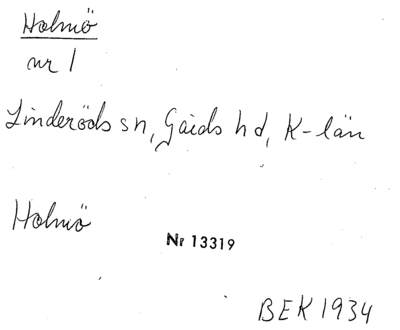 Holmö
nr 1
Linderöds sn, Gärds hd, K-län
Holmö
Nr 13319
BEK 1934